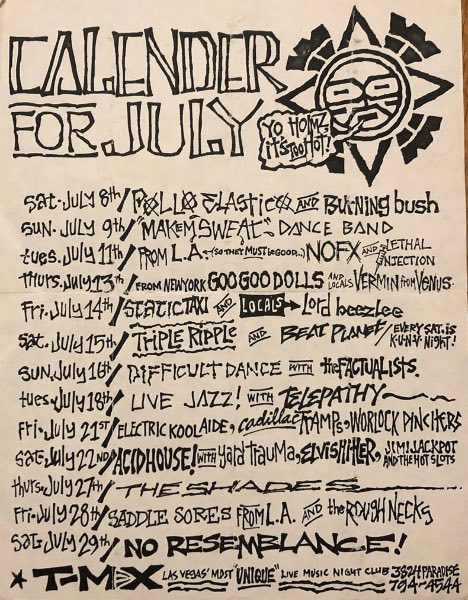 CALENDER
FOR JULY
YO HOLMZ
it's TOO HOT!
Sat. July 8th / POLLO ELASTICO AND BURNING bush
SUN. July 9th / "MAKEM SWEAT" DANCE BAND
tues. July 11th / FROM L.A. (SO they MUST be GOOD...) NOFX AND LETHAL INJECTION
Thurs. July 13th / FROM NEW YORK GOO GOO DOLLS AND LOCALS VERMIN from VENUS.
Fri. July 14th / StatiC TAXI AND LOCALS Lord beezlee
Sat. July 15th / TRIPLE RIPPLE AND BEAT PLANET / EVERY SAT. is K·U·N·V NIGHT!
SUN. July 16th / DIFFICULT DANCE WITH the FACTUALISTS.
tues. July 18th / LIVE JAZZ! WITH TELEPATHY
Fri. July 21st / ELECTRIC KOOLAIDE, cadillac TRAMPS, WORLOCK PINCHERS
Sat. July 22nd / ACID HOUSE! WITH yard trauma, ELVIS HITLER, JIM! JACKPOT AND THE HOT SLOTS
Thurs. July 27th / THE SHADES
Fri. July 28th / SADDLE SORES FROM L.A. AND the ROUGH NECKS
Sat. July 29th / NO RESEMBLANCE!
T-MEX LAS VEGAS' MOST "UNIQUE" LIVE MUSIC NIGHT CLUB 3824 PARADISE
794-4544